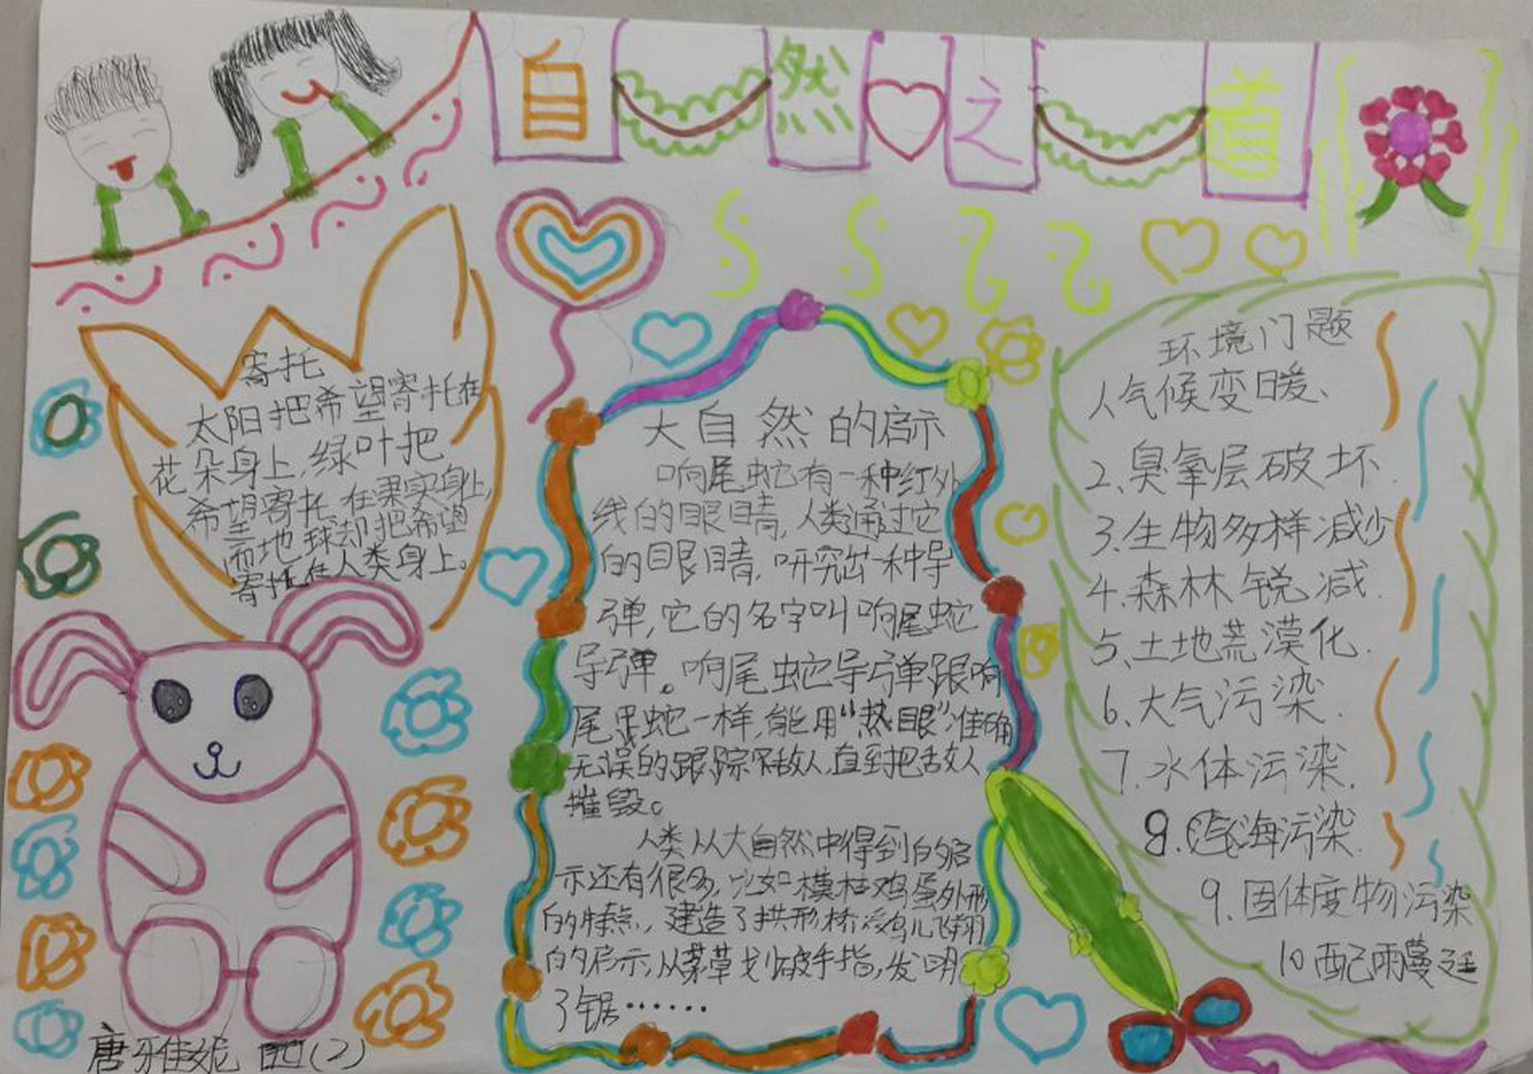 自然之道
寄托
太阳把希望寄托在
花朵身上,绿叶把
希望寄托在果实身上,
而地球却把希望
寄托在人类身上。
大自然的启示
响尾蛇有一种红外
线的眼睛,人类通过它
的眼睛,研究出一种导
弹,它的名字叫响尾蛇
导弹。响尾蛇导弹跟响
尾蛇一样,能用“热眼”准确
无误的跟踪敌人,直到把敌人
摧毁。
人类从大自然中得到的启
示还有很多,比如模枯鸡蛋外形
的特点,建造了拱形桥,鸟儿飞翔
的启示,从茅草划破手指,发明
了锯……
环境门题
1、气候变暖、
2、臭氧层破坏.
3、生物多样减少
4、森林锐减.
5、土地荒漠化.
6、大气污染.
7、水体污染.
8.海污染.
9、固体废物污染
10配雨蔓延
唐雅妮 四(2)